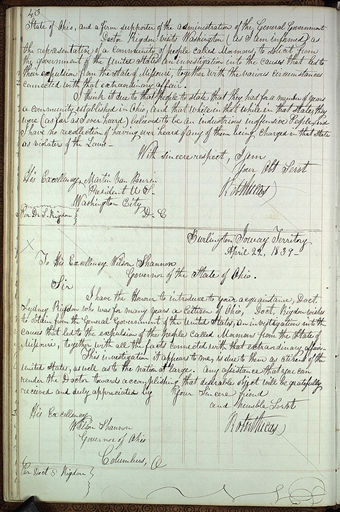 State of Ohio, and a firm supporter of the administration of the General Government
Doctor Rigdon visits Washington (as I am informed) as
the representative of a community of people called Mormons, to solicit from
the government of the United States an investigation into the causes that led to
their expulsion from the state of Missouri, together with the various circumstances
connected with that extraordinary affair.
I think it due to that people to state that they had for a number of years
a community established in Ohio, and that while in that state, they
were (as far as I ever heard) believed to be an industrious inoffensive People, and
I have no recollection of having ever heard of any of them being charged in that state
as violators of the Laws—
With sincere respect, I am
Your Obt Servt
Robt Lucas
His Excellency Martin Van Buren
President U.S.
Washington City
D. C.
Per Dr. S. Rigdon
Burlington Ioway Territory
April 22, 1839—
To His Excellency Wilson Shannon
Governor of the State of Ohio.
Sir
I have the Honor to introduce to your acquaintance, Doct
Sydney Rigdon who was for many years a Citizen of Ohio, Doct. Rigdon wishes
to obtain from the General Government of the United States, an investigation into the
causes that led to the expulsion of the People called Mormons from the State of
Missouri, together with all the facts connected with that extraordinary affair
This investigation it appears to me, is due to them as citizens of the
United States, as well as to the nation at large. Any assistance that you can
render the Doctor towards accomplishing that desirable object will be gratefully
received and duly appreciated by Your Sincere friend
and Humble Servt
Robt Lucas
His Excellency
Wilson Shannon
Governor of Ohio
Columbus, O
Per Doct S Rigdon